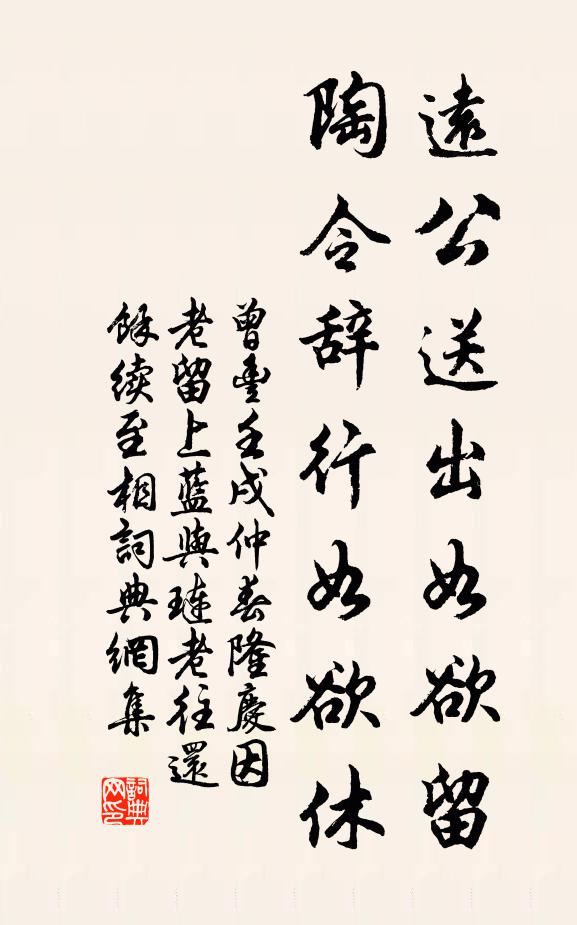 遠公送出如欲留
陶令辞行如欲休
曾豊壬戌仲春隆慶因
老留上藍與璉老往還
餘續至相詞典網集
詞典
网印